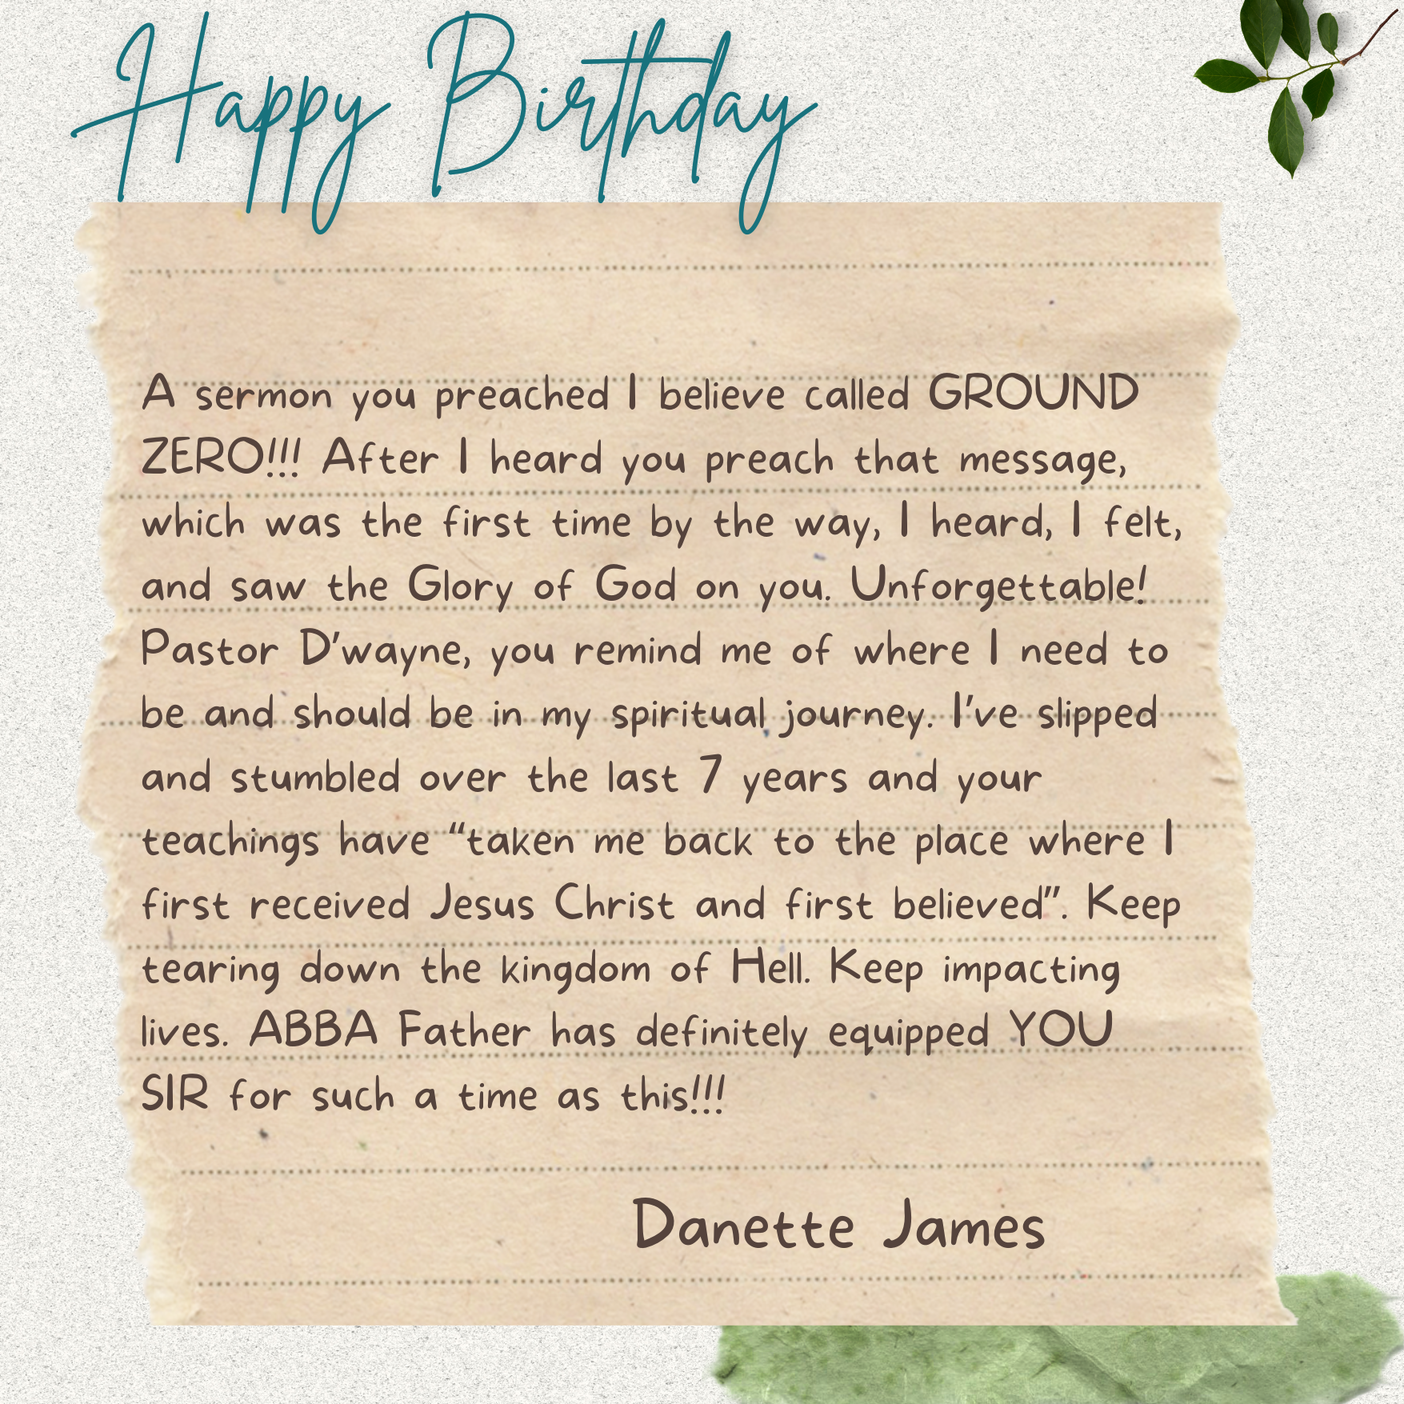 Happy Birthday
A sermon you preached I believe called GROUND
ZERO!!! After I heard you preach that message,
which was the first time by the way, I heard, I felt,
and saw the Glory of God on you. Unforgettable!
Pastor D'wayne, you remind me of where I need to
be and should be in my spiritual journey. I've slipped
and stumbled over the last 7 years and your
teachings have “taken me back to the place where I
first received Jesus Christ and first believed”. Keep
tearing down the kingdom of Hell. Keep impacting
lives. ABBA Father has definitely equipped YOU
SIR for such a time as this!!!
Danette James